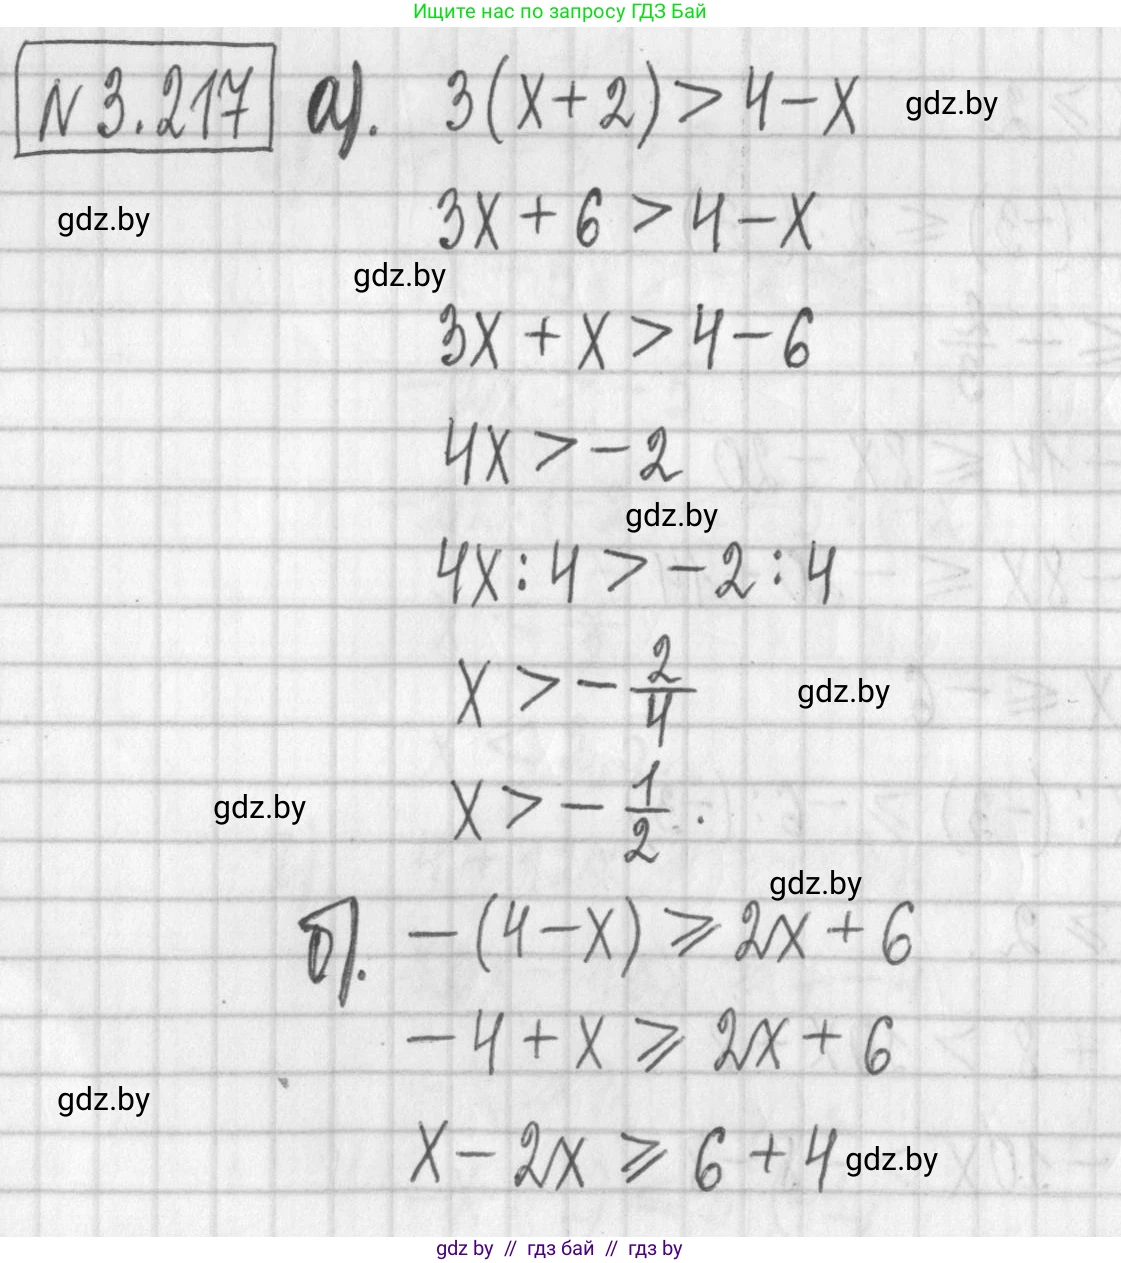 Ищите нас по запросу ГДЗ Бай
N 3.217 а). 3(x+2) > 4-x gdz.by
gdz.by 3x + 6 > 4 - x
gdz.by
3x + x > 4 - 6
4x > -2
gdz.by
4x : 4 > -2 : 4
x > - 2/4 gdz.by
gdz.by x > - 1/2 .
gdz.by
б). -(4-x) ⩾ 2x + 6
-4 + x ⩾ 2x + 6
gdz.by
x - 2x ⩾ 6 + 4 gdz.by
gdz by // гдз бай // гдз by